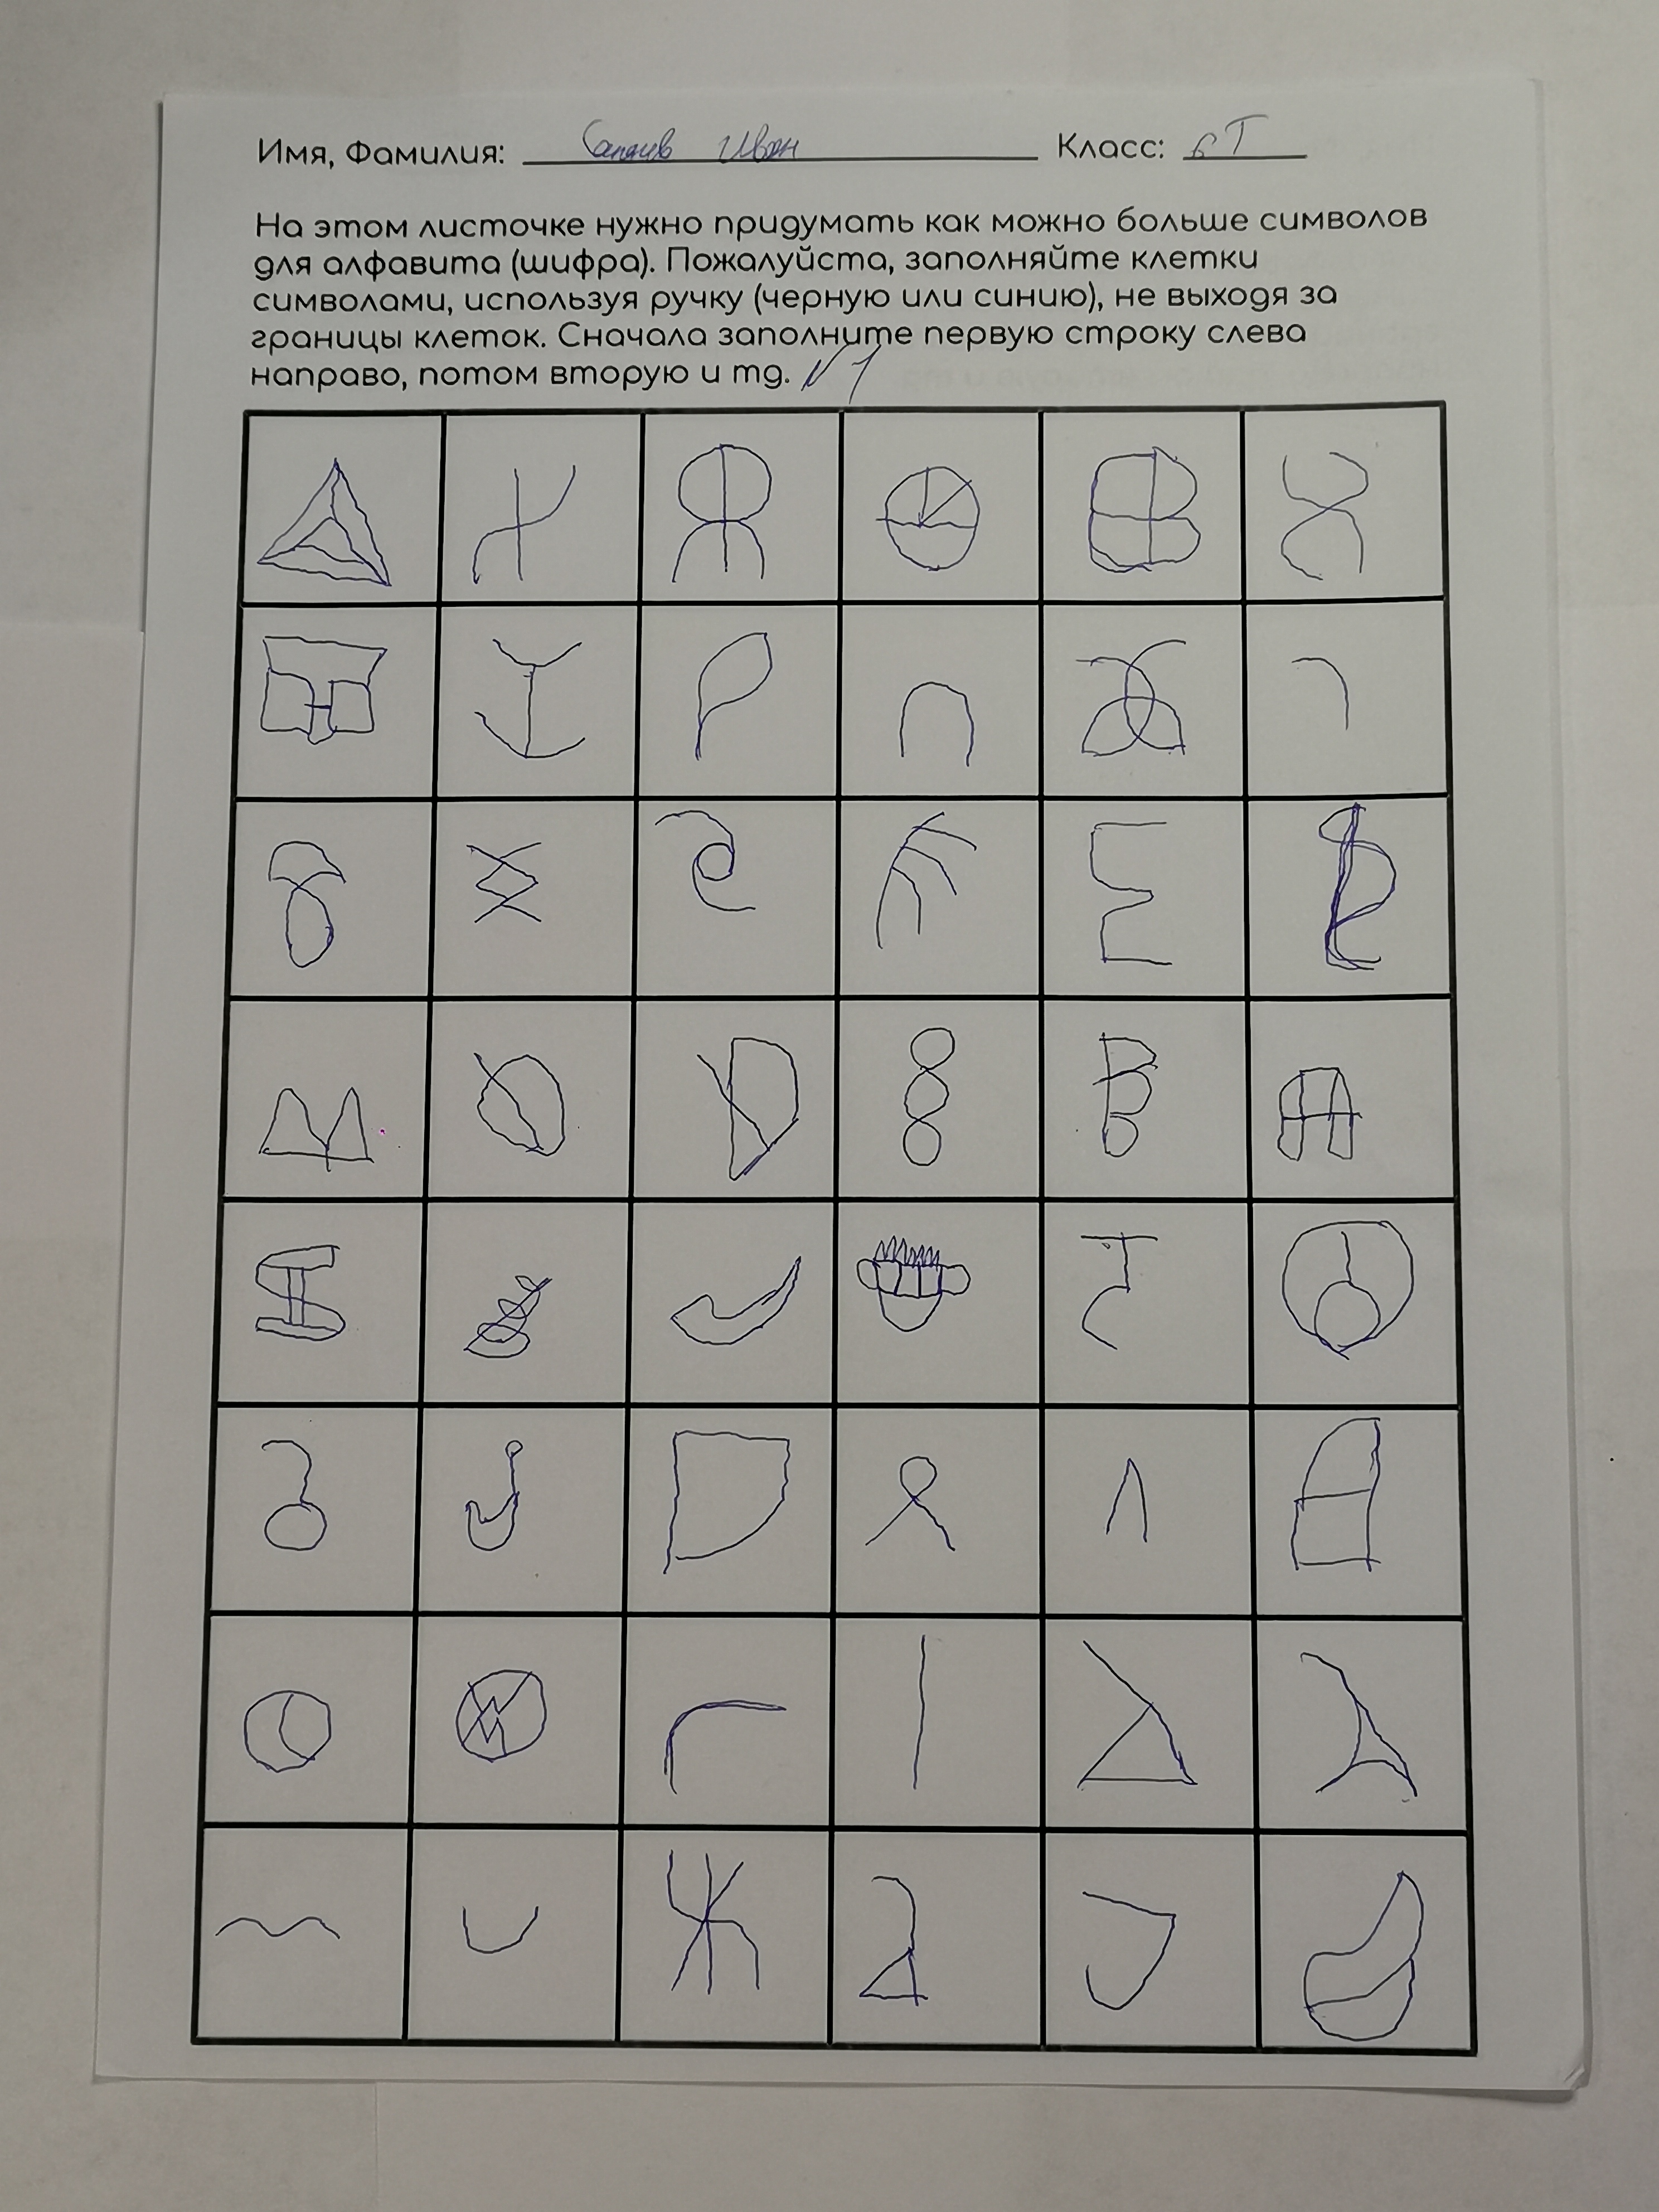 Имя, Фамилия: Иван Класс: 6Т
На этом листочке нужно придумать как можно больше символов
для алфавита (шифра). Пожалуйста, заполняйте клетки
символами, используя ручку (черную или синию), не выходя за
границы клеток. Сначала заполните первую строку слева
направо, потом вторую и тд. №1